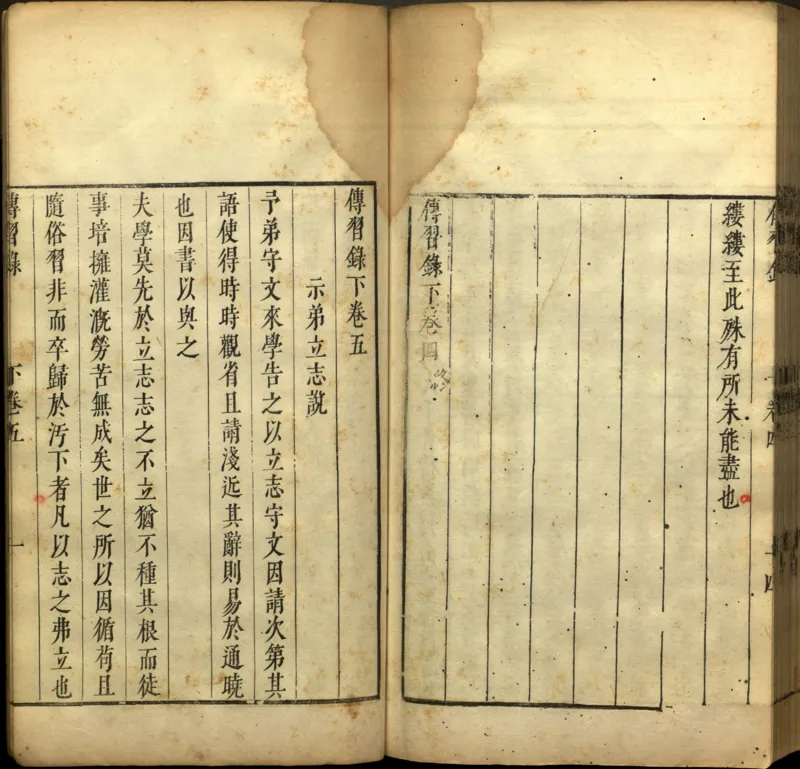 傳習錄
卷四
十四
縷縷至此殊有所未能盡也
傳習錄下卷四
傳習錄下卷五
示弟立志說
予弟守文來學告之以立志守文因請次第其
語使得時時觀省且請淺近其辭則易於通曉
也因書以與之
夫學莫先於立志志之不立猶不種其根而徒
事培擁灌漑勞苦無成矣世之所以因循苟且
隨俗習非而卒歸於汚下者凡以志之弗立也
傳習錄
下卷五
一